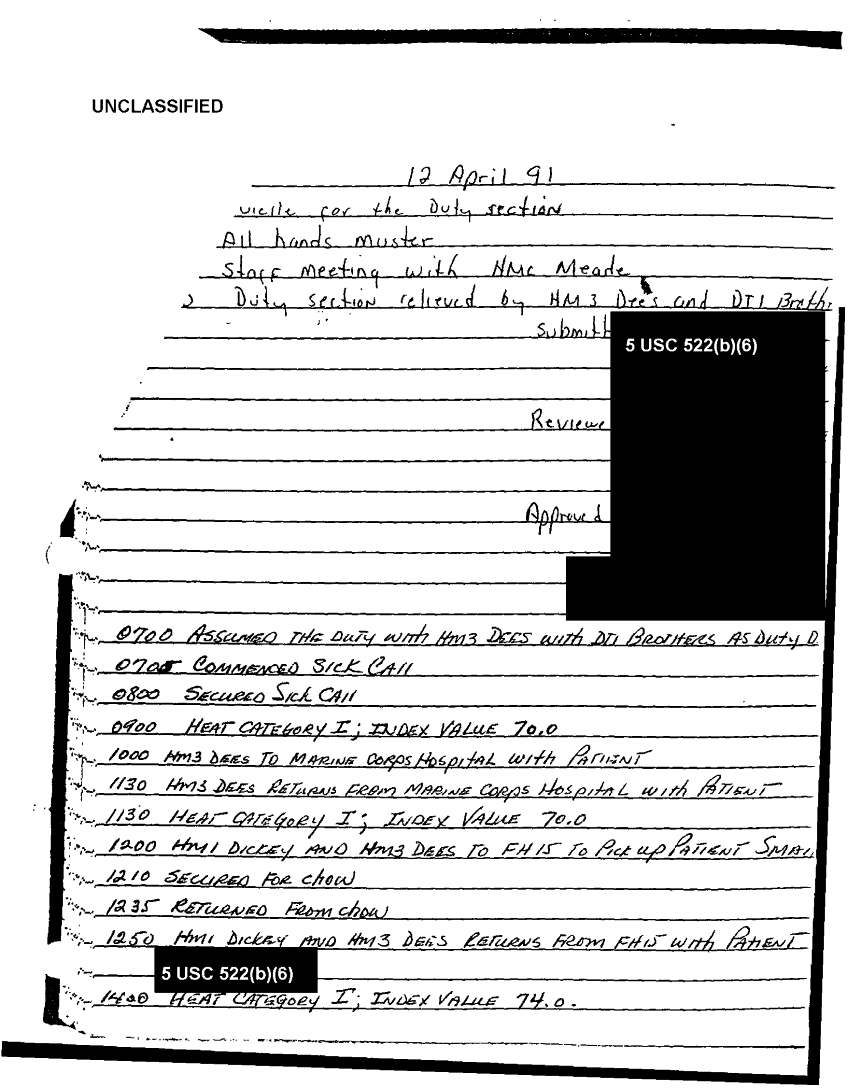 UNCLASSIFIED
12 April 91
for the Duty section
All hands muster
Staff meeting with HMC Meade
Duty section relieved by HM3 Dees and DT1 Broth
Submitt
5 USC 522(b)(6)
Reviewe
Approved
0700 ASSUMED THE DUTY WITH HM3 DEES WITH DT1 BROTHERS AS DUTY D
0705 COMMENCED SICK CALL
0800 SECURED SICK CALL
0900 HEAT CATEGORY I; INDEX VALUE 70.0
1000 HM3 DEES TO MARINE CORPS HOSPITAL WITH PATIENT
1130 HM3 DEES RETURNS FROM MARINE CORPS HOSPITAL WITH PATIENT
1130 HEAT CATEGORY I; INDEX VALUE 70.0
1200 HM1 DICKEY AND HM3 DEES TO FH15 TO PICK UP PATIENT SMAL
1210 SECURED FOR CHOW
1235 RETURNED FROM CHOW
1250 HM1 DICKEY AND HM3 DEES RETURNS FROM FH15 WITH PATIENT
5 USC 522(b)(6)
1400 HEAT CATEGORY I; INDEX VALUE 74.0.